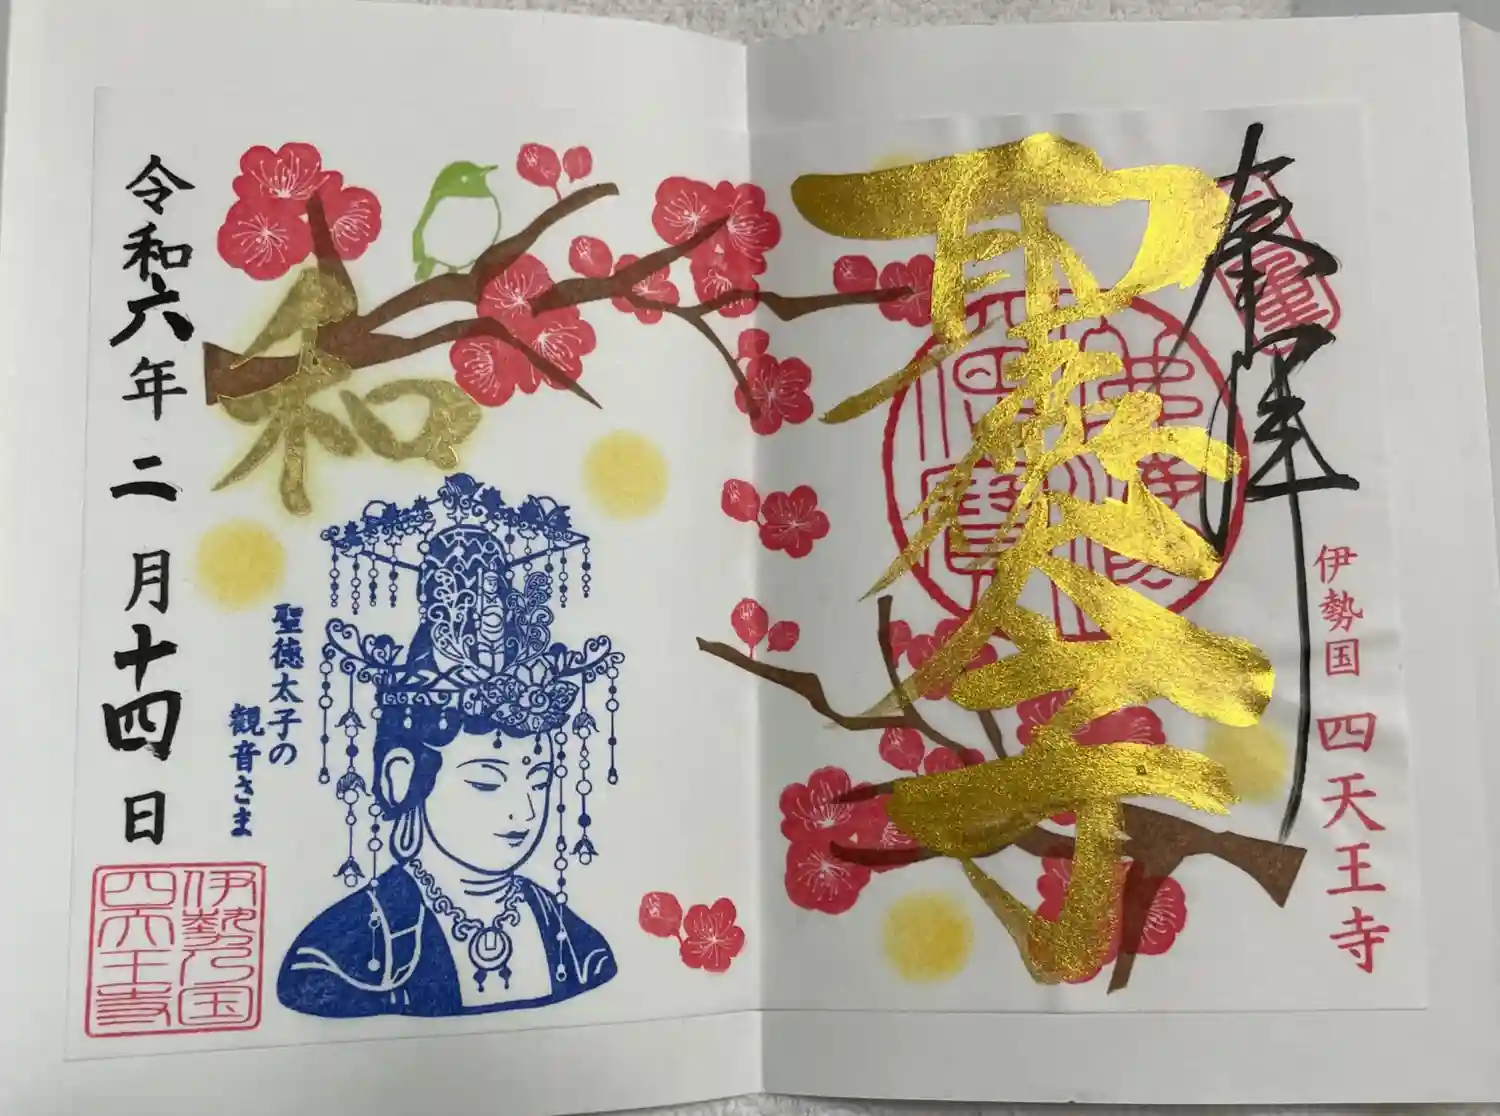 奉拝
伊勢国 四天王寺
聖太子
佛法
僧寶
和
聖徳太子の
観音さま
令和六年二月十四日
伊勢乃国
四天王寺